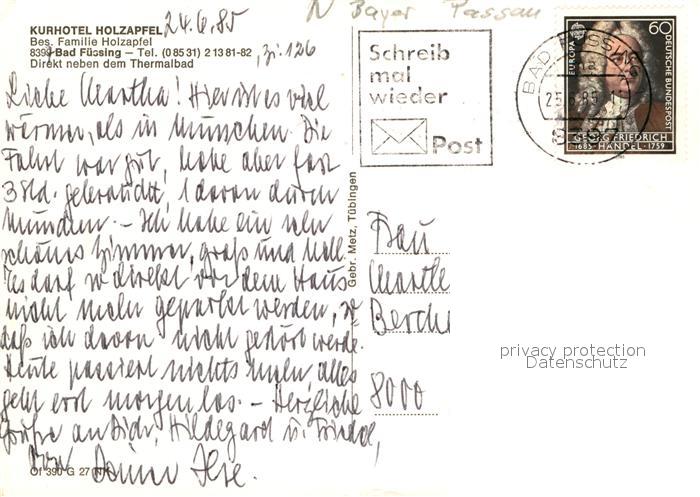 24.6.85
KURHOTEL HOLZAPFEL
Bes. Familie Holzapfel
8397 Bad Füssing — Tel. (0 85 31) 2 13 81-82, Zi. 126
Direkt neben dem Thermalbad
Liebe Martha! Hier ist es viel
wärmer, als in München. Die
Fahrt war gut, habe aber fast
3 Std. gebraucht, 1 davon durch
München. – Ich habe ein sehr
schönes Zimmer, groß und hell.
Es darf direkt vor dem Haus
nicht mehr geparkt werden, so
daß ich davon nicht gestört werde.
Heute passiert nichts mehr, alles
geht erst morgen los. – Herzliche
Grüße an Dich, Hildegard u.
von Deiner Ilse.
Of 390 G 27
Gebr. Metz, Tübingen
N Bayer Passau
Schreib
mal
wieder
Post
BAD FÜSSING
EUROPA
60
DEUTSCHE BUNDESPOST
GEORG FRIEDRICH
1685 · HÄNDEL · 1759
Frau
8000
privacy protection
Datenschutz